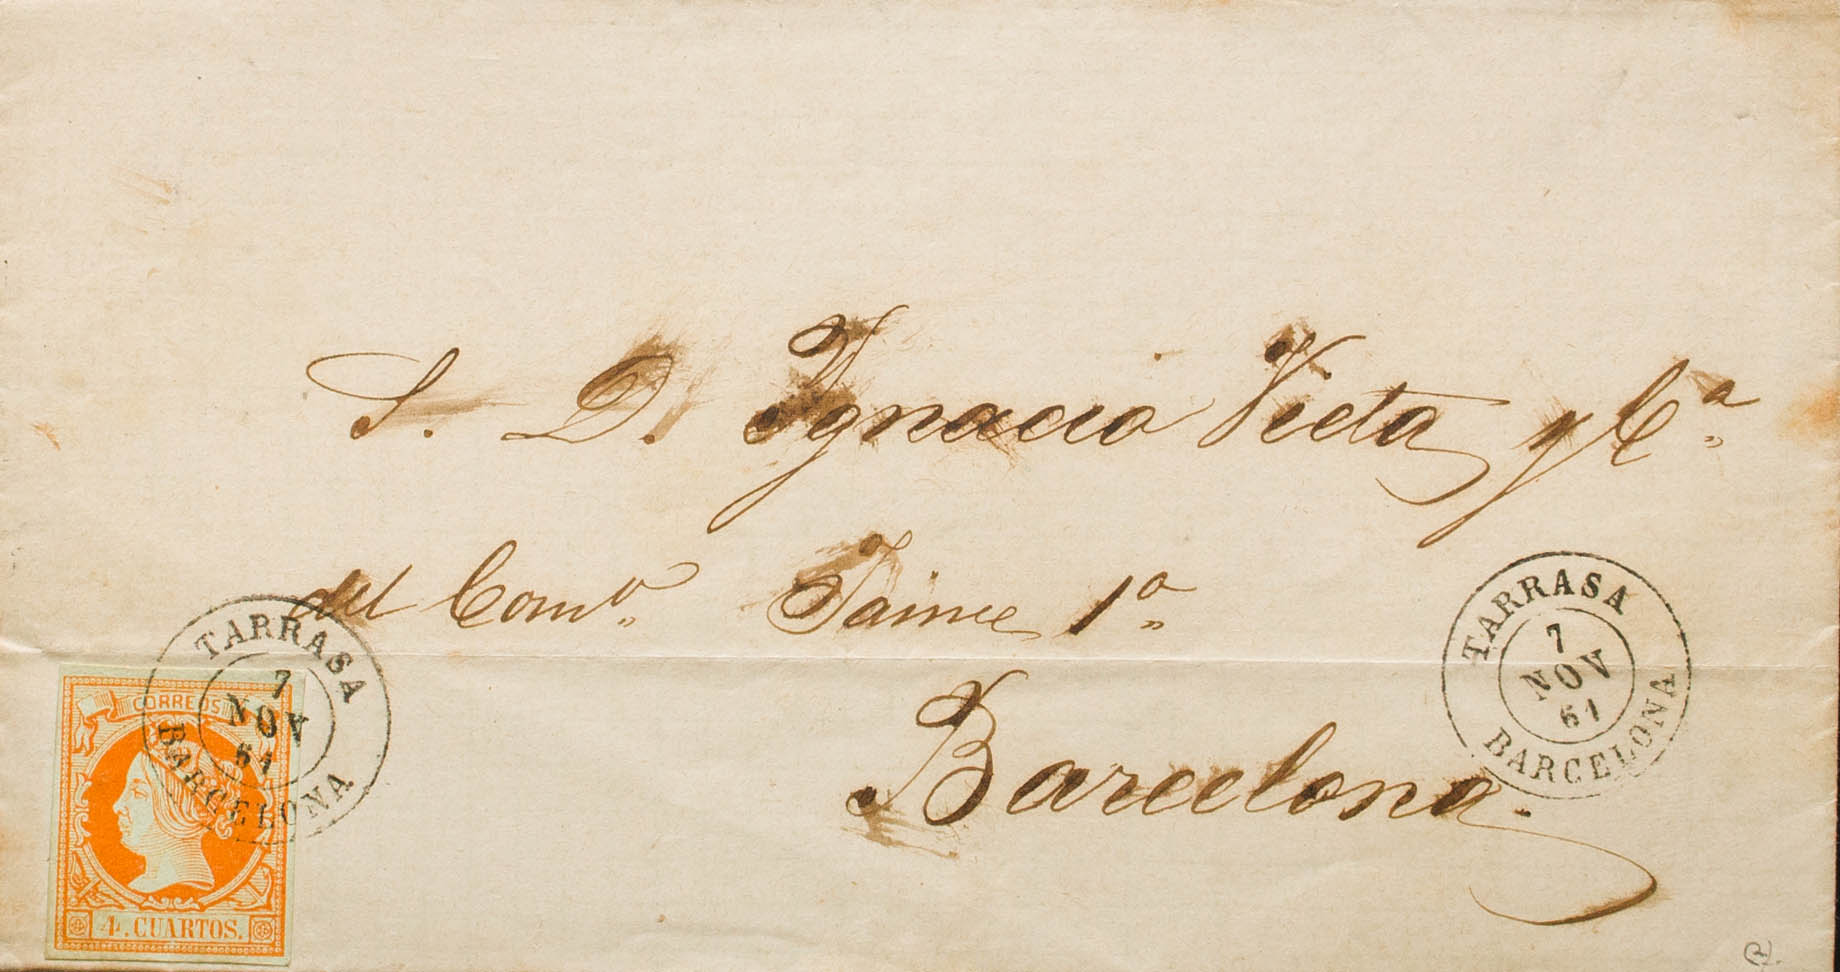 S. D. Ygnacio Vieta y Cª
del Comº Jaime 1º
Barcelona
TARRASA
7
NOV
61
BARCELONA
CORREOS
4. CUARTOS.
TARRASA
7
NOV
61
BARCELONA